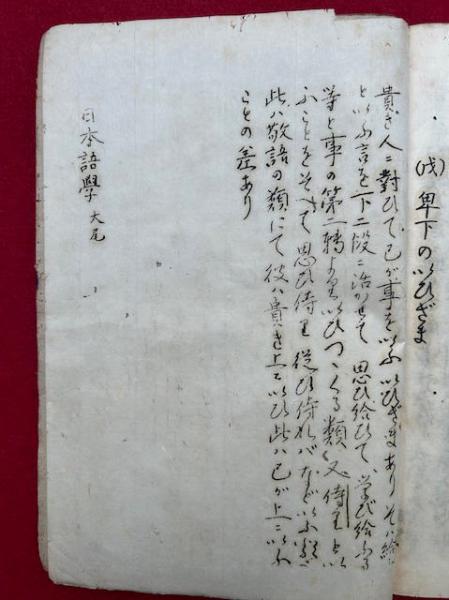 (戊) 卑下のいひざま
貴き人ニ對ひて己が事をいふいひざまありそハ給
といふ言を下二段ニ活かせて思ひ給ひて、学び給ふる
等と事の第二轉よりいひつゞくる類又侍りとい
ふことをそへて思ひ侍り従ひ侍れバなどいふ
此ハ敬語の類にて彼ハ貴き上ニいひ此ハ己が上ニいふ
ことの差あり
日本語學 大尾